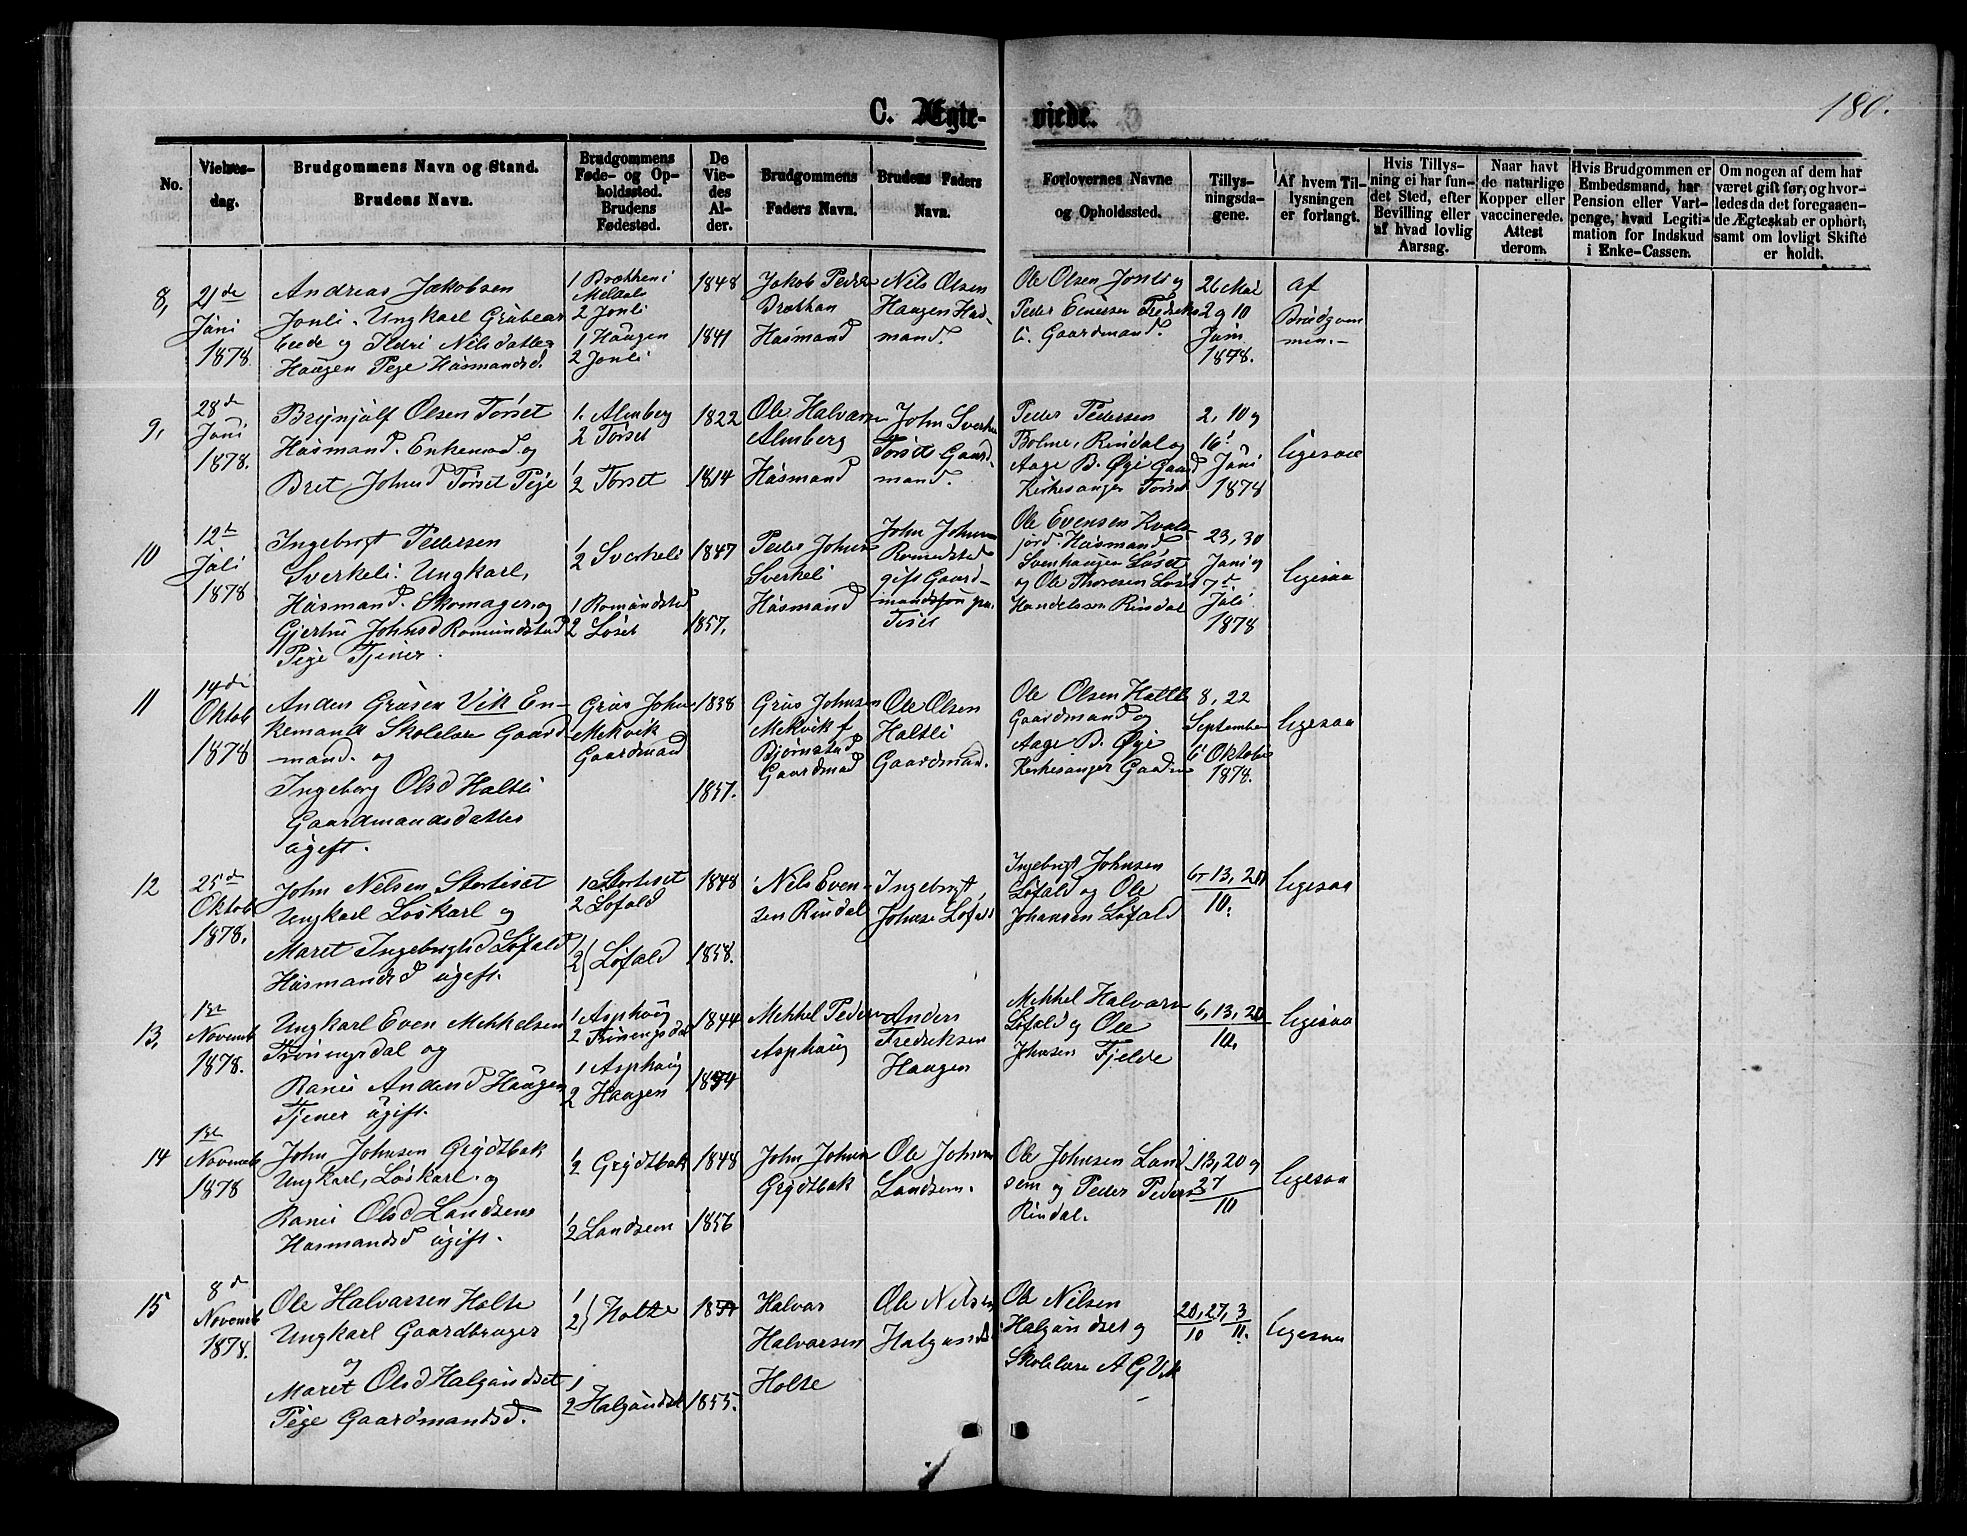 C. Ægte-
viede.
180.
No.
Vielses-
dag.
Brudgommens Navn og Stand.
Brudens Navn.
Brudgommens
Føde- og Op-
holdssted.
Brudens
Fødested.
De
Vie-
des
Al-
der.
Brudgommens
Faders Navn.
Brudens Faders
Navn.
Forlovernes Navne
og Opholdssted.
Tillys-
ningsda-
gene.
Af hvem Til-
lysningen
er forlangt.
Hvis Tillys-
ning ei har fun-
det Sted, efter
Bevilling eller
af hvad lovlig
Aarsag.
Naar havt
de naturlige
Kopper eller
vaccinerede.
Attest
derom.
Hvis Brudgommen er
Embedsmand, har
Pension eller Vart-
penge, hvad Legiti-
mation for Indskud
i Enke-Cassen.
Om nogen af dem har
været gift før, og hvor-
ledes da det foregaaen-
de Ægteskab er ophørt,
samt om lovligt Skifte
er holdt.
8,
21de
Juni
1878.
Andreas Jakobsen
Jonli. Ungkarl
og Nilsdatter
Haugen Pige Husmandsd.
1 Brækken i
Meldals
2 Jonli
1 Haugen
2 Jonli
1848
1841
Jakob Peders
Brækkan
Husmand
Nils Olsen
Haugen Hus-
mand.
Ole Olsen Jonli og
Peder
Gaardmand.
26 Mai
2 og 10
Juni
1878.
af
Brudgom
men.-
9,
28de
Juni
1878.
Brynjulf Olsen Torset
Husmand. Enkemand og
Bret Johnsd Torset Pige
1. Almberg
2 Torset
1/2 Torset
1822
1814
Ole Halvarsen
Almberg
Husmand
John Sverke
Torset Gaard-
mand.
Peder Pedersen
Bolme, Rindal og
Aage B. Øye Gaard
Kirkesanger Torset
2, 10 og
16'
Juni
1878
ligesaa
10
12te
Juli
1878
Ingebrigt Pedersen
Sverkeli. Ungkarl,
Husmand. Skomager og
Gjertru Johnsd Romundstad
Pige Tjener.
1/2 Sverkeli
1 Romundstad
2 Løset
1847
1857.
Peder Johnsen
Sverkeli
Husmand
John Johnsen
Romundstad
gift Gaard-
mandssøn paa
Tiset
Ole Evensen Kvals-
jord. Husmand
Svenhaugen Løset
og Ole Thoresen Løset
Handelsm Rindal
23, 30
Juni og
7de
Juli
1878
ligesaa
11
14de
Oktob
1878
Anders Gråsen Vik En-
kemand Skolelær Gaard
mand. og
Ingeborg Olsd Haltli
Gaardmandsdatter
ugift.
Grus Johns
Mekvik
Gaardmand
1838
1857.
Grus Johnsen
Mekvik f
Bjørnstad
Gaardmand
Ole Olsen
Haltli
Gaardmand.
Ole Olsen Haltli
Gaardmand og
Aage B. Øye
Kirkesanger Gaardm
8, 22
September
6' Oktober
1878.
ligesaa
12
25de
Oktob
1878.
John Nelsen Stortiset
Ungkarl Løskarl og
Maret Ingebrigtsd Løfald
Husmandsd ugift.
1 Stortiset
2 Løfald
1/2} Løfald
1848
1858.
Nils Even-
sen Rindal
Ingebrigt
Johnse Løfald
Ingebrigt Johnsen
Løfald og Ole
Johansen Løfald
6- 13, 20
10.
ligesaa
13,
1ste
Novemb
1878.
Ungkarl Even Mekkelsen
Trøningsdal og
Ranei Andersd Haugen
Tjener ugift.
1 Asphaug
2 Trøningsdal
1 Asphaug
2 Haugen
1844
1854
Mekkel Peders
Asphaug
Anders
Fredriksen
Haugen
Mekkel Halvars
Løfald og Ole
Johnsen Fjelde
6, 13, 20
10.
ligesaa
14
1ste
Novemb
1878
John Johnsen Grydtbak
Ungkarl, Løskarl. og
Ranei Olsd Landsem
Husmandsd ugift.
1/2 Grydtbak
1/2 Landsem
1848
1856
John Johnsen
Grydtbak
Ole Johnsen
Landsem.
Ole Johnsen Land
sem og Peder Peders
Rindal.
13, 20 og
27
10
ligesaa
15
8de
Novemb
1878.
Ole Halvarsen Holte
Ungkarl Gaardbruger
og
Maret Olsd Halgundset
Pige Gaardmandsd.
1
2} Holte
1
2 Halgundset
1855.
Halvar
Halvarsen
Holte
Ole Nelsen
Halgundset
Ole Nilsen
Halgundset og
Skolelære A G Vik
20, 27, 3
10 11.
ligesaa